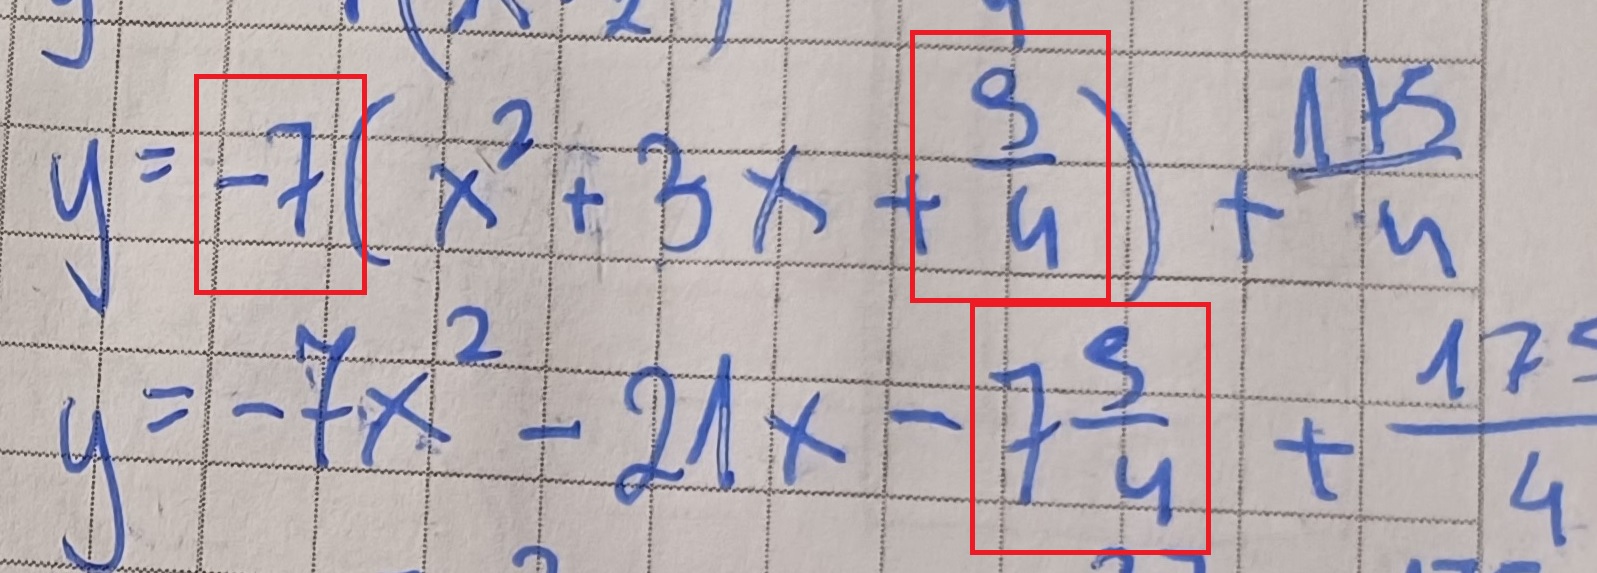 y = -7(x² + 3x + 9/4) + 175/4
y = -7x² - 21x - 7 9/4 + 175/4